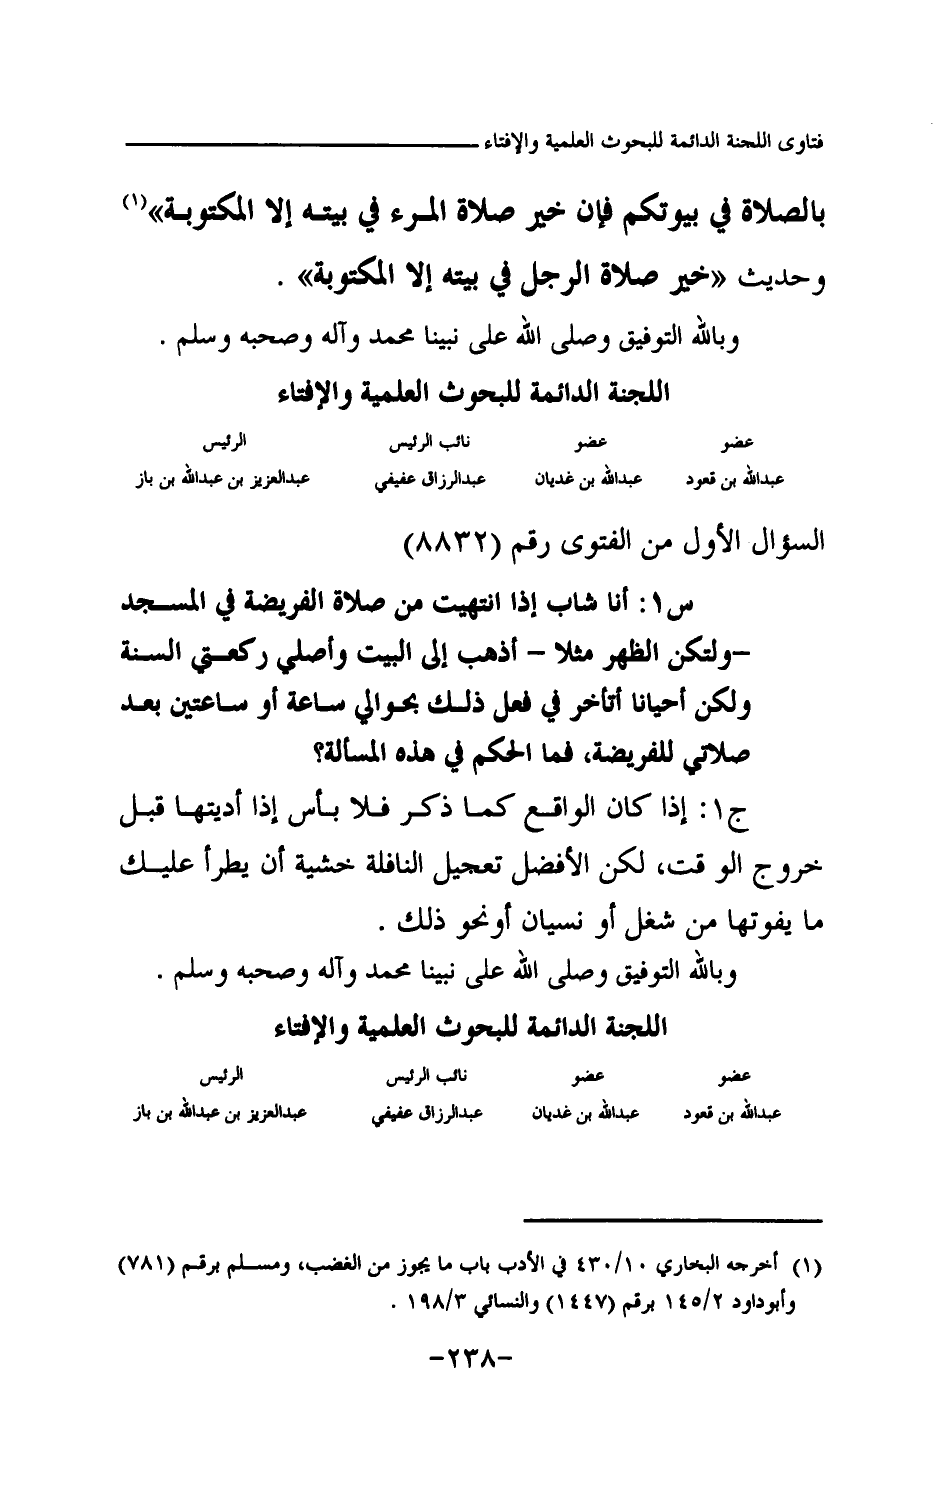 فتاوى اللجنة الدائمة للبحوث العلمية والإفتاء
بالصلاة في بيوتكم فإن خير صلاة المرء في بيته إلا المكتوبة»(١)
وحديث «خير صلاة الرجل في بيته إلا المكتوبة» .
وبالله التوفيق وصلى الله على نبينا محمد وآله وصحبه وسلم .
اللجنة الدائمة للبحوث العلمية والإفتاء
عضو عضو نائب الرئيس الرئيس
عبدالله بن قعود عبدالله بن غديان عبدالرزاق عفيفي عبدالعزيز بن عبدالله بن باز
السؤال الأول من الفتوى رقم (٨٨٣٢)
س١: أنا شاب إذا انتهيت من صلاة الفريضة في المسجد
–ولتكن الظهر مثلا – أذهب إلى البيت وأصلي ركعتي السنة
ولكن أحيانا أتأخر في فعل ذلك بحوالي ساعة أو ساعتين بعد
صلاتي للفريضة، فما الحكم في هذه المسألة؟
ج١: إذا كان الواقع كما ذكر فلا بأس إذا أديتها قبل
خروج الوقت، لكن الأفضل تعجيل النافلة خشية أن يطرأ عليك
ما يفوتها من شغل أو نسيان أونحو ذلك .
وبالله التوفيق وصلى الله على نبينا محمد وآله وصحبه وسلم .
اللجنة الدائمة للبحوث العلمية والإفتاء
عضو عضو نائب الرئيس الرئيس
عبدالله بن قعود عبدالله بن غديان عبدالرزاق عفيفي عبدالعزيز بن عبدالله بن باز
(١) أخرجه البخاري ٤٣٠/١٠ في الأدب باب ما يجوز من الغضب، ومسلم برقم (٧٨١)
وأبوداود ١٤٥/٢ برقم (١٤٤٧) والنسائي ١٩٨/٣ .
–٢٣٨–